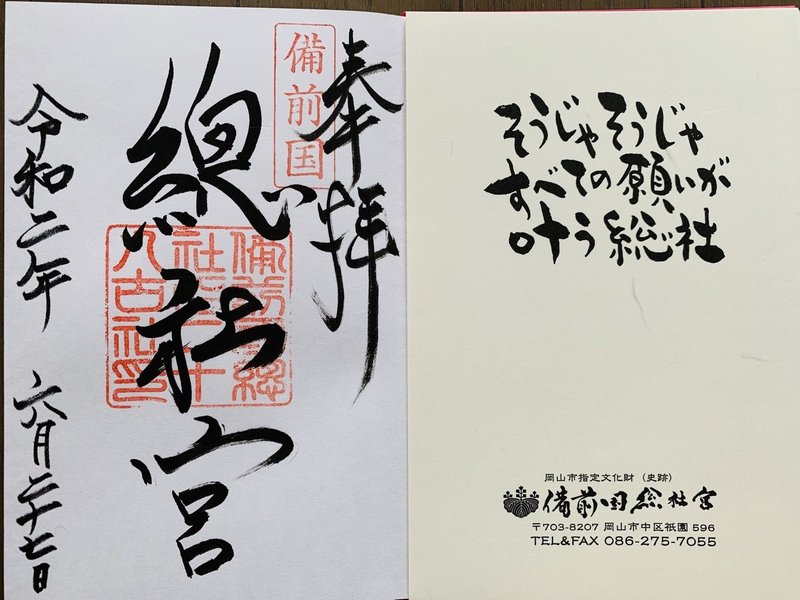 奉拝
備前国
總社宮
八古社印
令和二年 六月二十七日
そうじゃそうじゃ
すべての願いが
叶う総社
岡山市指定文化財（史跡）
備前国総社宮
〒703-8207 岡山市中区祇園 596
TEL&FAX 086-275-7055